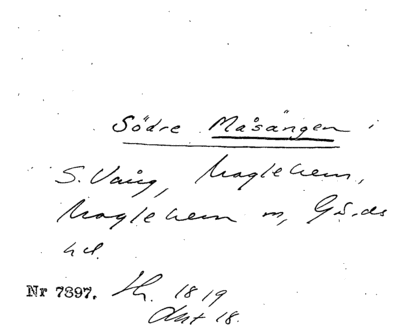 Södre Måsängen i
S. Vång, Maglehem,
Maglehem sn, Gärds
hd.
Nr 7897. Sk. 1819
Akt 18.